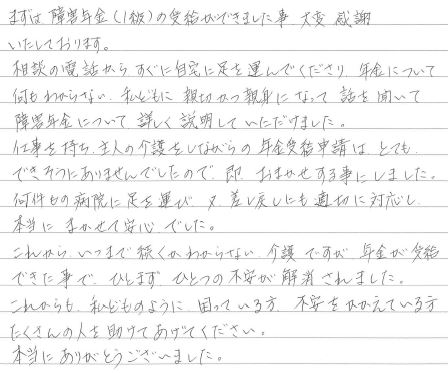 まずは 障害年金(1級)の受給ができました事 大変 感謝
いたしております。
相談の電話から すぐに自宅に足を運んでくださり 年金について
何もわからない 私どもに 親切かつ親身に なって 話を聞いて
障害年金について 詳しく 説明して いただけました。
仕事を持ち、主人の介護をしながらの 年金受給申請は とても
できそうにありませんでしたので、即、おまかせする事にしました。
何件もの病院に足を運び 又 差し戻しにも適切に対応し
本当に まかせて安心 でした。
これから いつまで続くかわからない 介護 ですが 年金が受給
できた事で、ひとまず ひとつの不安が解消 されました。
これからも 私どものように 困っている方 不安をかかえている方
たくさんの人を助けてあげてください。
本当にありがとうございました。